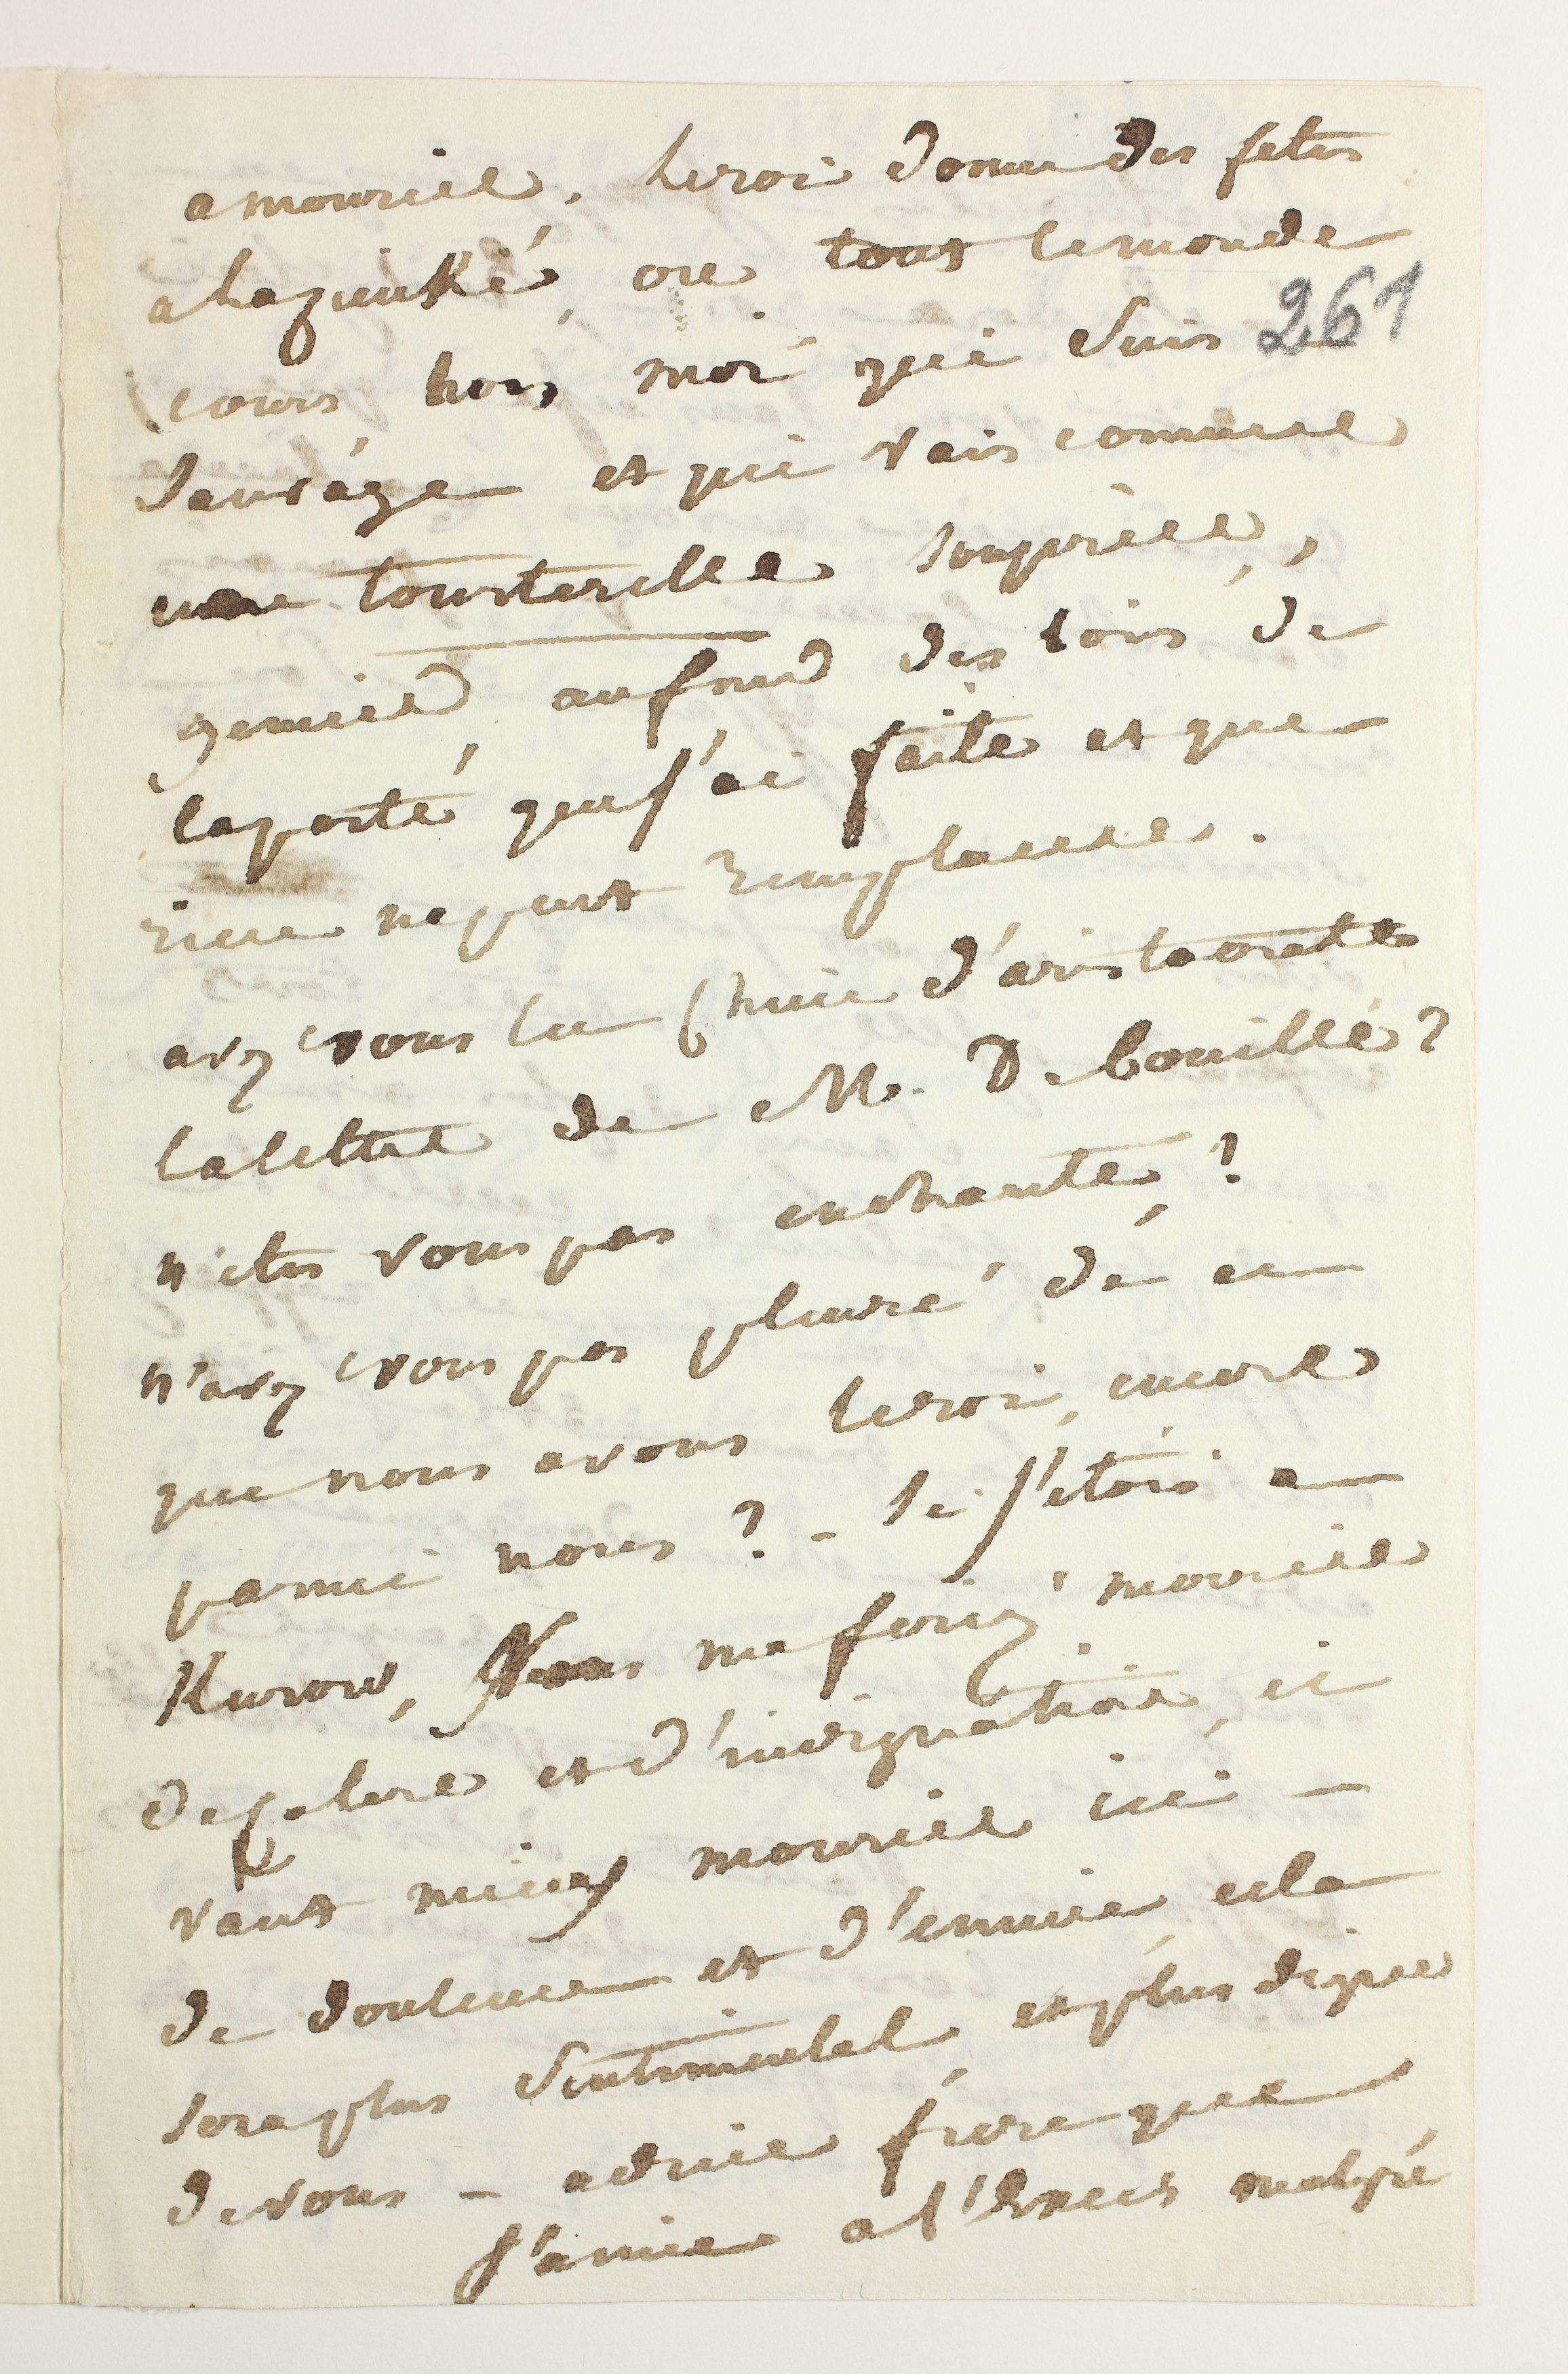 a mourire. le roi donne des fetes
a Lazinké, ou tout le monde
cours hors moi qui suis
261
sauvage et qui vais comme
une tourterelle soupirer,
gemire, au fond des bois de
la perte que j'ai faite et que
rien ne peut remplacer.
avez vous lu (hum d'aristocrate
la lettre de M. De bouillé?
n'etes vous pas enchanté?
n'avez vous pas pleuré de ce
que nous avons le roi, encore
parmi nous? - Si j'etois a
Kurow, Vous me feriez mourire
de colere et d'indignation, il
vaut mieux mourire ici -
de douleur et d'ennuie, cela
sera plus sentimental, et plus digne
de vous - adieu frere que
j'aime a l'exces malgré